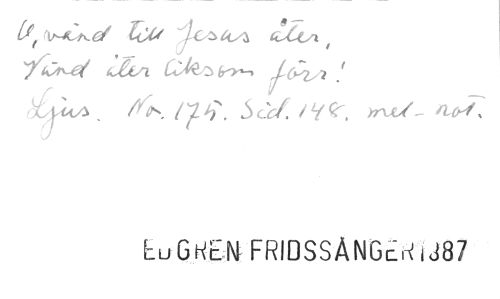 O, vänd till Jesus åter,
Vänd åter liksom förr!
Ljus. No. 175. Sid. 148. mel-not.
EDGREN FRIDSSÅNGER 1887